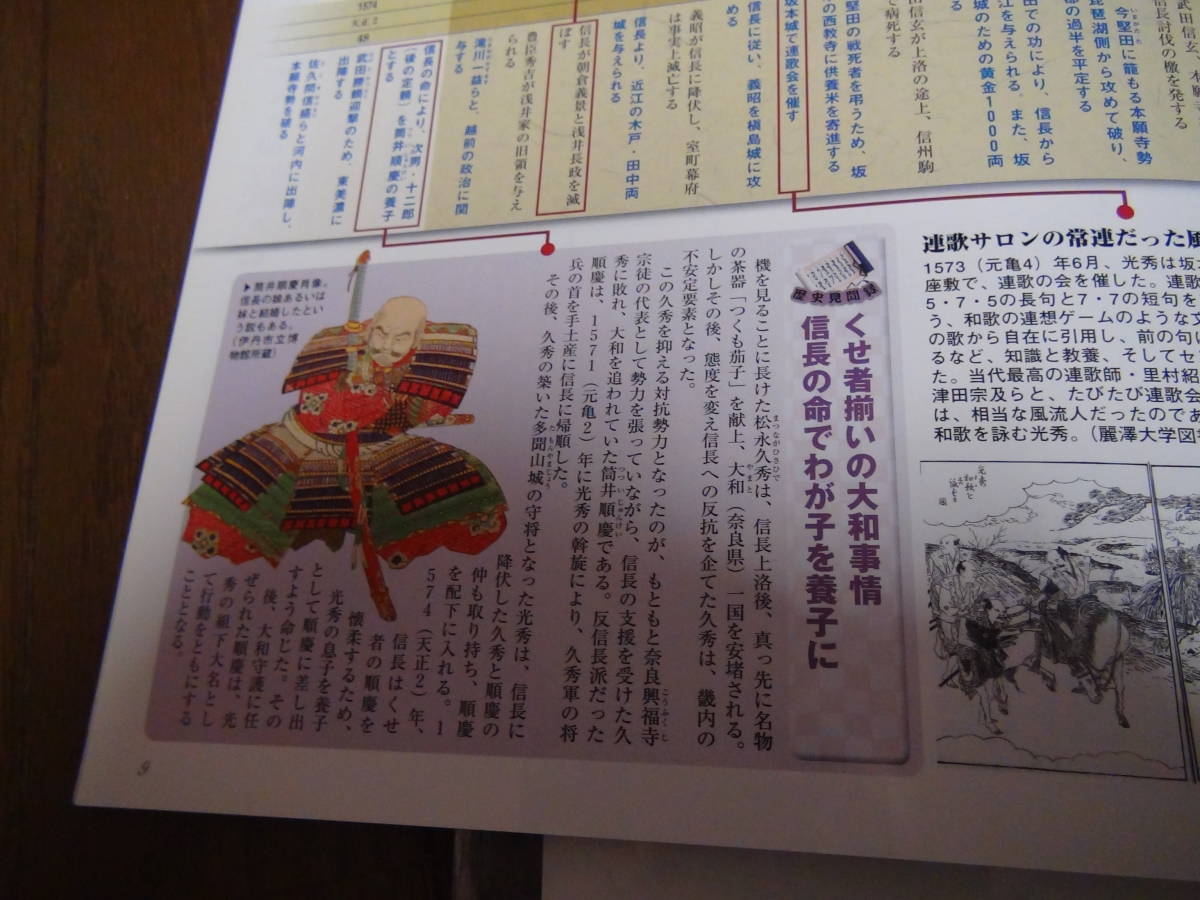 武田信玄、本願
信長討伐の檄を発する
今堅田に籠もる本願寺勢
琵琶湖側から攻めて破り、
郡の過半を平定する
田での功により、信長から
江を与えられる。また、坂
城のための黄金1000両
田信玄が上洛の途上、信州駒
で病死する
堅田の戦死者を弔うため、坂
の西教寺に供養米を寄進する
坂本城で連歌会を催す
信長に従い、義昭を槇島城に攻
める
義昭が信長に降伏し、室町幕府
は事実上滅亡する
信長より、近江の木戸・田中両
城を与えられる
信長が朝倉義景と浅井長政を滅
ぼす
豊臣秀吉が浅井家の旧領を与え
られる
滝川一益らと、越前の政治に関
与する
信長の命により、次男・十二郎
（後の定頼）を筒井順慶の養子
とする
武田勝頼迎撃のため、東美濃に
出陣する
佐久間信盛らと河内に出陣し、
本願寺勢を破る
1574
天正2
48
連歌サロンの常連だった風
1573（元亀4）年6月、光秀は坂
座敷で、連歌の会を催した。連歌
5・7・5の長句と7・7の短句を
う、和歌の連想ゲームのような文
の歌から自在に引用し、前の句に
るなど、知識と教養、そしてセ
た。当代最高の連歌師・里村紹
津田宗及らと、たびたび連歌会
は、相当な風流人だったのであ
和歌を詠む光秀。（麗澤大学図
歴史見聞録
くせ者揃いの大和事情
信長の命でわが子を養子に
機を見ることに長けた松永久秀は、信長上洛後、真っ先に名物
の茶器「つくも茄子」を献上、大和（奈良県）一国を安堵される。
しかしその後、態度を変え信長への反抗を企てた久秀は、畿内の
不安定要素となった。
この久秀を抑える対抗勢力となったのが、もともと奈良興福寺
宗徒の代表として勢力を張っていながら、信長の支援を受けた久
秀に敗れ、大和を追われていた筒井順慶である。反信長派だった
順慶は、1571（元亀2）年に光秀の斡旋により、久秀軍の将
兵の首を手土産に信長に帰順した。
その後、久秀の築いた多聞山城の守将となった光秀は、信長に
降伏した久秀と順慶の
仲も取り持ち、順慶
を配下に入れる。1
574（天正2）年、
信長はくせ
者の順慶を
懐柔するため、
光秀の息子を養子
として順慶に差し出
すよう命じた。その
後、大和守護に任
ぜられた順慶は、光
秀の組下大名とし
て行動をともにする
こととなる。
▶筒井順慶肖像。
信長の娘あるいは
妹と結婚したとい
う説もある。
（伊丹市立博
物館所蔵）
9